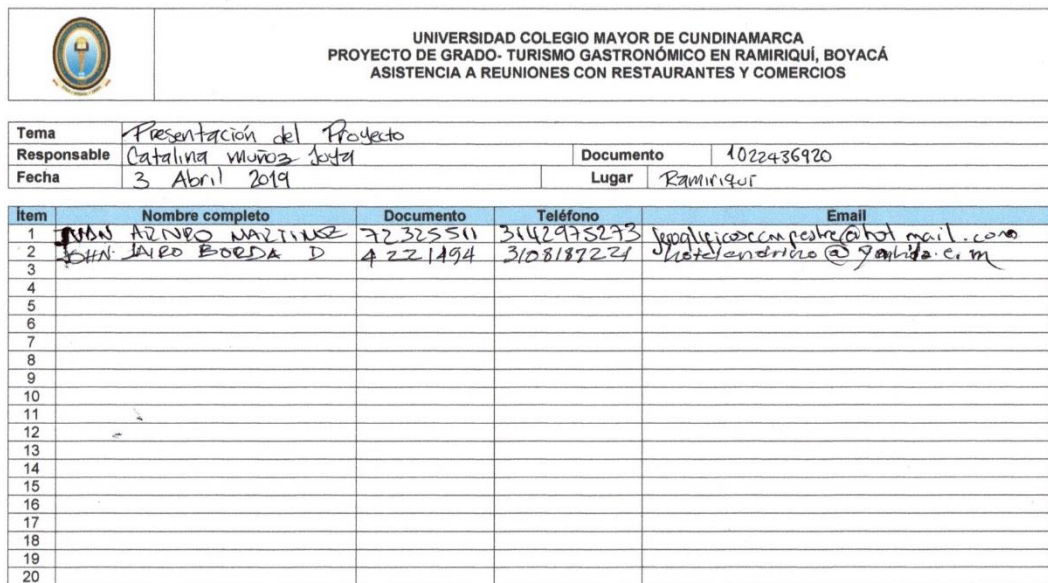 UNIVERSIDAD COLEGIO MAYOR DE CUNDINAMARCA
PROYECTO DE GRADO- TURISMO GASTRONÓMICO EN RAMIRIQUÍ, BOYACÁ
ASISTENCIA A REUNIONES CON RESTAURANTES Y COMERCIOS
Tema Presentación del Proyecto
Responsable Catalina Muñoz Joya Documento 1022436920
Fecha 3 Abril 2019 Lugar Ramiriquí
Ítem Nombre completo Documento Teléfono Email
1 MARTINEZ 72325511 3142975273
2 JOHN JAIRO BORDA D 4221494
3
4
5
6
7
8
9
10
11
12
13
14
15
16
17
18
19
20